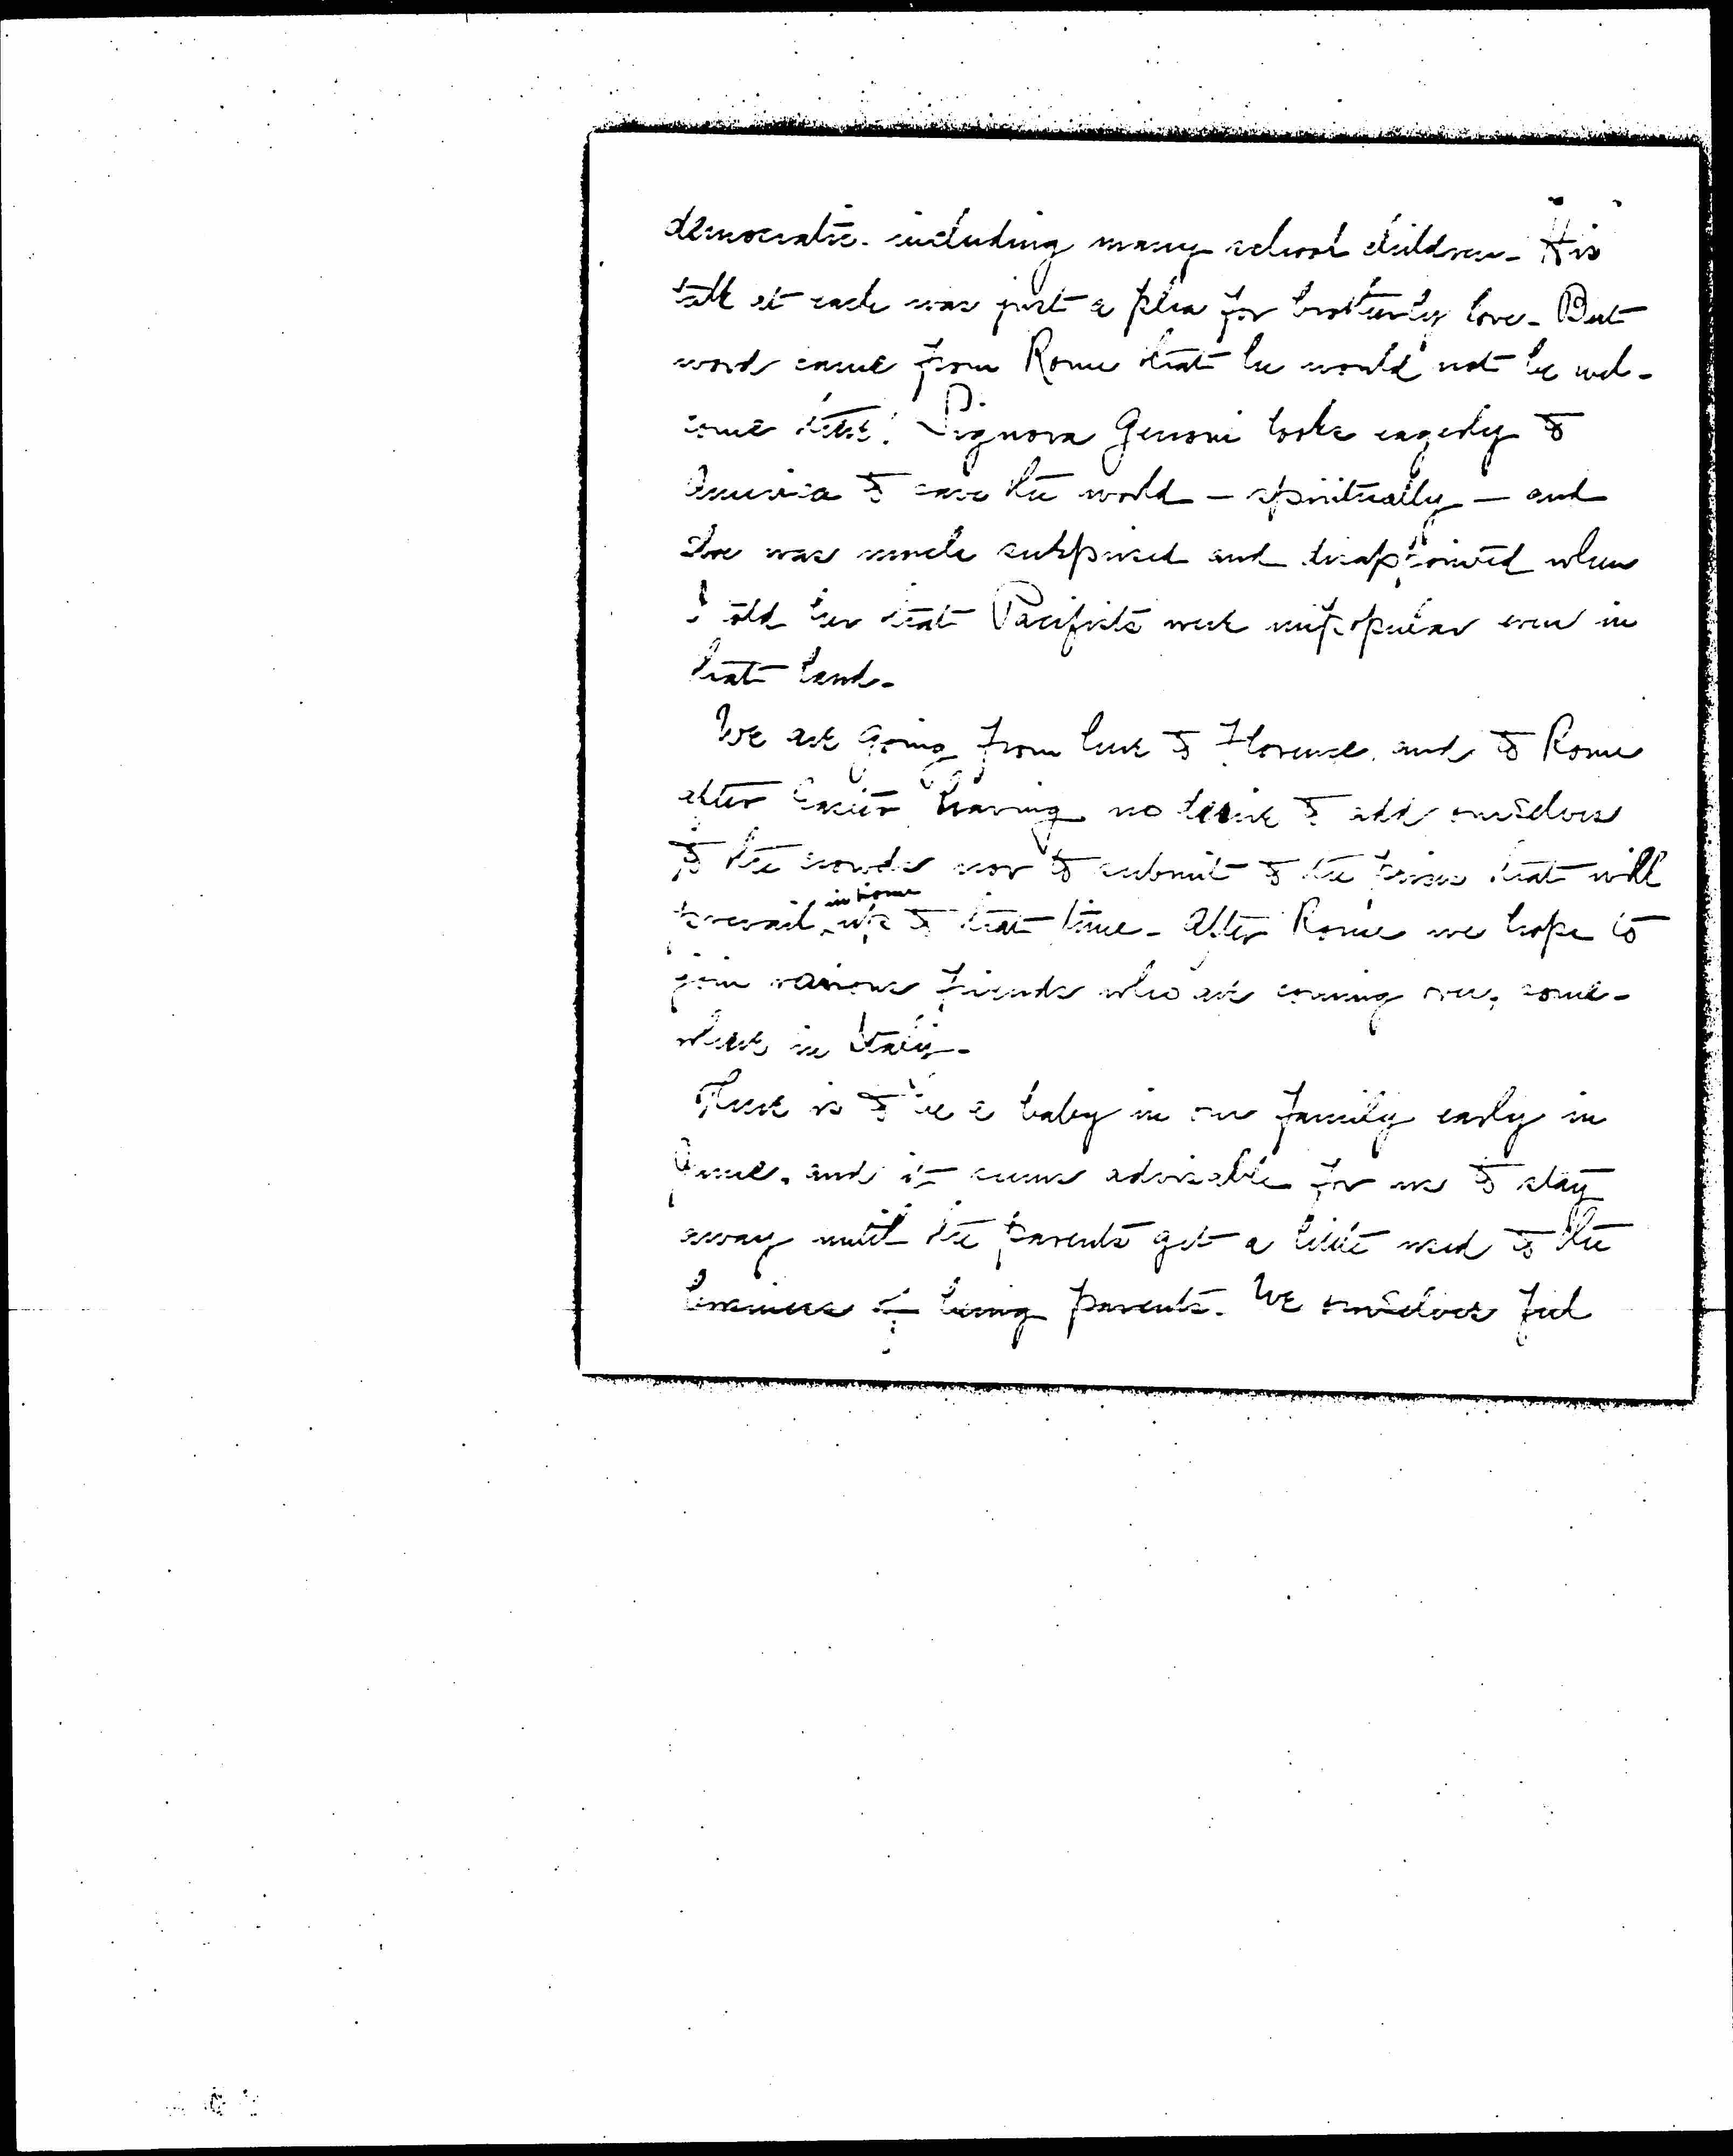 democratic - including many school children - His
talk at each was just a plea for brotherly love - But
word came from Rome that he would not be wel-
come there! Signora Genoni looks eagerly to
America to save the world - spiritually - and
she was much surprised and disappointed when
I told her that Pacifists were unpopular even in
that land -
We are going from here to Florence, and to Rome
after Easter having no desire to add ourselves
to the crowds nor to submit to the prices that will
in Rome
prevail up to that time - After Rome we hope to
join various friends who are coming over, some-
where in Italy -
There is to be a baby in our family early in
June, and it seems advisable for us to stay
away until the parents get a little used to the
business of being parents. We ourselves feel